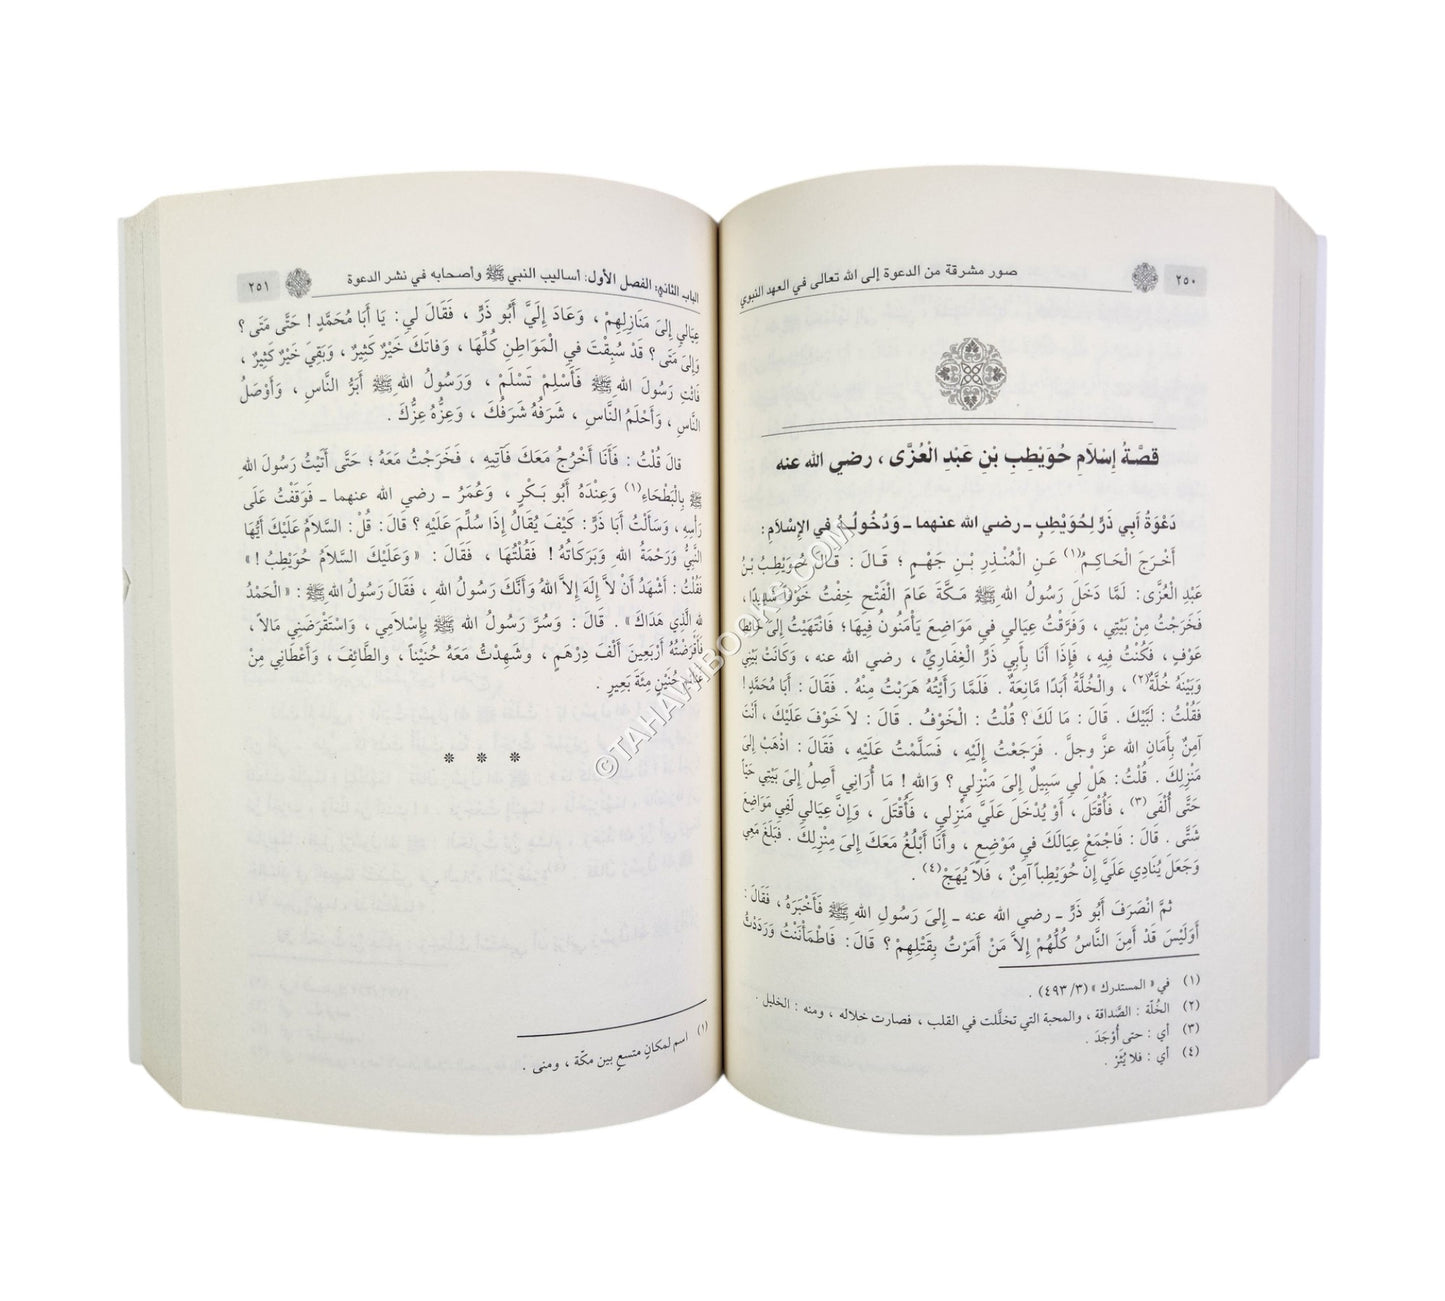 ٢٥٠
صور مشرقة من الدعوة إلى الله تعالى في العهد النبوي
قصَّةُ إِسْلَامِ حُوَيْطِبِ بْنِ عَبْدِ الْعُزَّى ، رضي الله عنه
دَعْوَةُ أَبِي ذَرٍّ لِحُوَيْطِبٍ ـ رضي الله عنهما ـ وَدُخُولُهُ في الإِسْلَامِ :
أَخْرَجَ الْحَاكِمُ(١) عَنِ الْمُنْذِرِ بْنِ جَهْمٍ ؛ قَالَ : قَالَ حُوَيْطِبُ بْنُ
عَبْدِ الْعُزَّى: لَمَّا دَخَلَ رَسُولُ اللهِ ﷺ مَكَّةَ عَامَ الْفَتْحِ خِفْتُ خَوْفاً شَدِيداً ،
فَخَرَجْتُ مِنْ بَيْتِي ، وَفَرَّقْتُ عِيَالِي فِي مَوَاضِعَ يَأْمَنُونَ فِيهَا؛ فَانْتَهَيْتُ إِلَى حَائِطِ
عَوْفٍ ، فَكُنْتُ فِيهِ ، فَإِذَا أَنَا بِأَبِي ذَرٍّ الْغِفَارِيِّ ، رضي الله عنه ، وَكَانَتْ بَيْنِي
وَبَيْنَهُ خُلَّةٌ(٢) ، والْخُلَّةُ أَبَدًا مَّانِعَةٌ . فَلَمَّا رَأَيْتُهُ هَرَبْتُ مِنْهُ . فَقَالَ: أَبَا مُحَمَّدٍ!
فَقُلْتُ : لَبَّيْكَ . قَالَ : مَا لَكَ ؟ قُلْتُ : الْخَوْفُ . قَالَ : لاَ خَوْفَ عَلَيْكَ ، أَنْتَ
آمِنٌ بِأَمَانِ الله عزَّ وجلَّ . فَرَجَعْتُ إِلَيْهِ ، فَسَلَّمْتُ عَلَيْهِ ، فَقَالَ : اذْهَبْ إِلَى
مَنْزِلِكَ . قُلْتُ: هَلْ لِي سَبِيلٌ إِلَى مَنْزِلِي ؟ وَالله ! مَا أُرَانِي أَصِلُ إِلَى بَيْتِي حَيّاً
حَتَّى أُلْفَى(٣) ، فَأُقْتَلَ ، أَوْ يُدْخَلَ عَلَيَّ مَنْزِلِي ، فَأُقْتَلَ ، وَإِنَّ عِيَالِي لَفِي مَوَاضِعَ
شَتَّى . قَالَ : فَاجْمَعْ عِيَالَكَ فِي مَوْضِعٍ ، وأَنَا أَبْلُغُ مَعَكَ إِلَى مَنْزِلِكَ . فَبَلَغَ مَعِي
وَجَعَلَ يُنَادِي عَلَيَّ إِنَّ حُوَيْطِباً آمِنٌ ، فَلاَ يُهَجْ(٤) .
ثمَّ انْصَرَفَ أَبُو ذَرٍّ ـ رضي الله عنه ـ إِلَى رَسُولِ اللهِ ﷺ فَأَخْبَرَهُ ، فَقَالَ :
أَوَلَيْسَ قَدْ أَمِنَ النَّاسُ كُلُّهُمْ إِلاَّ مَنْ أَمَرْتُ بِقَتْلِهِمْ ؟ قَالَ : فَاطْمَأْنَنْتُ وَرَدَدْتُ
(١) في « المستدرك » (٣/ ٤٩٣) .
(٢) الخُلَّة : الصَّداقة ، والمحبة التي تخلَّلت في القلب ، فصارت خلاله ، ومنه : الخليل .
(٣) أي : حتى أُوْجَدَ .
(٤) أي : فلا يُثَرْ .
الباب الثاني، الفصل الأول: أساليب النبي ﷺ وأصحابه في نشر الدعوة
٢٥١
عِيَالِي إِلَى مَنَازِلِهِمْ ، وَعَادَ إِلَيَّ أَبُو ذَرٍّ ، فَقَالَ لِي: يَا أَبَا مُحَمَّدٍ ! حَتَّى مَتَى ؟
وَإِلَى مَتَى ؟ قَدْ سُبِقْتَ فِي الْمَوَاطِنِ كُلِّهَا ، وَفَاتَكَ خَيْرٌ كَثِيرٌ ، وَبَقِيَ خَيْرٌ كَثِيرٌ ،
فَائْتِ رَسُولَ اللهِ ﷺ فَأَسْلِمْ تَسْلَمْ ، وَرَسُولُ اللهِ ﷺ أَبَرُّ النَّاسِ ، وَأَوْصَلُ
النَّاسِ ، وَأَحْلَمُ النَّاسِ ، شَرَفُهُ شَرَفُكَ ، وَعِزُّهُ عِزُّكَ .
قالَ قُلْتُ : فَأَنَا أَخْرُجُ مَعَكَ فَآتِيهِ ، فَخَرَجْتُ مَعَهُ ؛ حَتَّى أَتَيْتُ رَسُولَ اللهِ
ﷺ بِالْبَطْحَاءِ(١) وَعِنْدَهُ أَبُو بَكْرٍ ، وَعُمَرُ ـ رضي الله عنهما ـ فَوَقَفْتُ عَلَى
رَأْسِهِ ، وَسَأَلْتُ أَبَا ذَرٍّ : كَيْفَ يُقَالُ إِذَا سُلِّمَ عَلَيْهِ ؟ قَالَ: قُلْ: السَّلاَمُ عَلَيْكَ أَيُّهَا
النَّبِيُّ وَرَحْمَةُ اللهِ وَبَرَكَاتُهُ ! فَقُلْتُهَا ، فَقَالَ : « وَعَلَيْكَ السَّلاَمُ حُوَيْطِبُ ! »
فَقُلْتُ : أَشْهَدُ أَنْ لاَّ إِلَهَ إِلاَّ اللهُ وَأَنَّكَ رَسُولُ اللهِ ، فَقَالَ رَسُولُ اللهِ ﷺ : « الْحَمْدُ
لله الَّذِي هَدَاكَ » . قَالَ : وَسُرَّ رَسُولُ الله ﷺ بِإِسْلاَمِي ، وَاسْتَقْرَضَنِي مَالاً ،
فَأَقْرَضْتُهُ أَرْبَعِينَ أَلْفَ دِرْهَمٍ ، وشَهِدْتُ مَعَهُ حُنَيْناً ، والطَّائِفَ ، وَأَعْطَانِي مِنْ
غَنَائِمِ حُنَيْنٍ مِئَةَ بَعِيرٍ .
* * *
(١) اسم لمكانٍ متسعٍ بين مكّة ، ومنى .
©TAHAWIBOOKS.COM